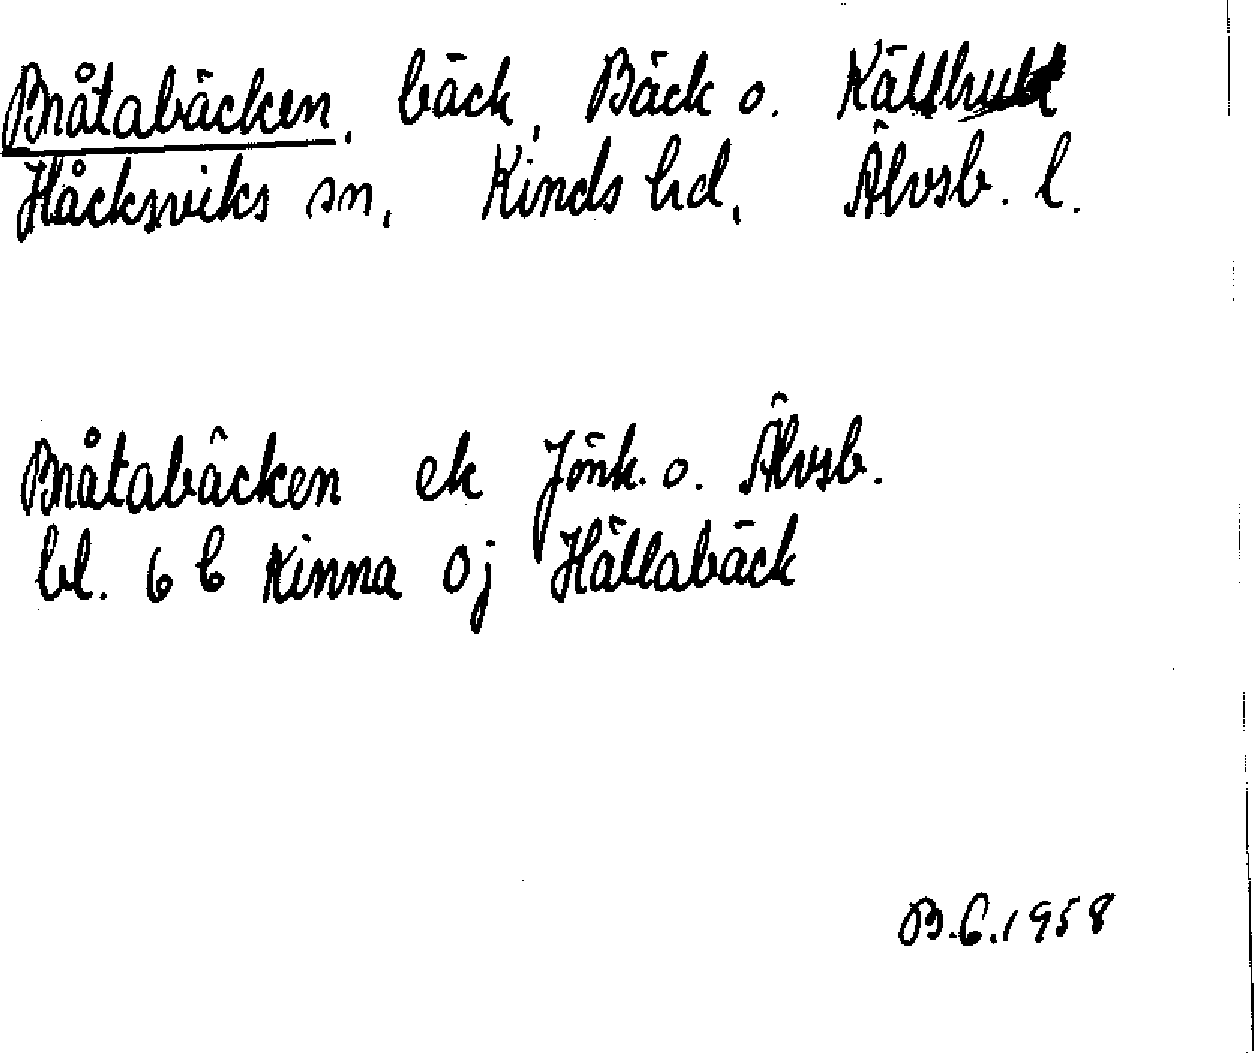 Bråtabäcken, bäck, Bäck o. Källhult
Håcksviks sn, Kinds hd, Älvsb. l.
Bråtabäcken ek Jönk. o. Älvsb.
bl. 6 b Kinna Oj Hällabäck
B.G.1958